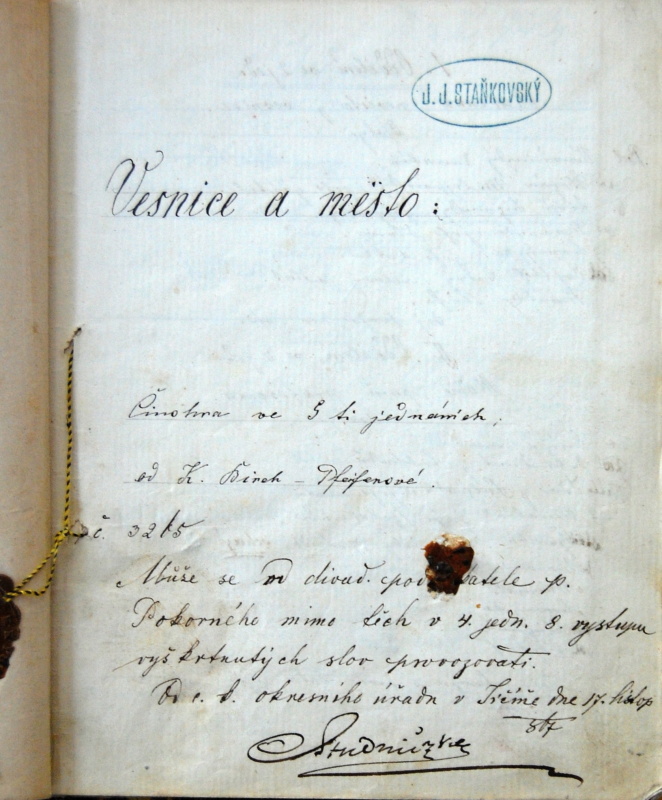 J. J. STAŇKOVSKÝ
Vesnice a město:
Činohra ve 5 ti jednáních;
od K. Birch – Pfeiferové.
č. 3215
Může se od divad. pod atele p.
Pokorného mimo těch v 4. jedn. 8. výstupu
vyškrtnutých slov provozovati.
Od c. k. okresního úřadu v dne 17. listop